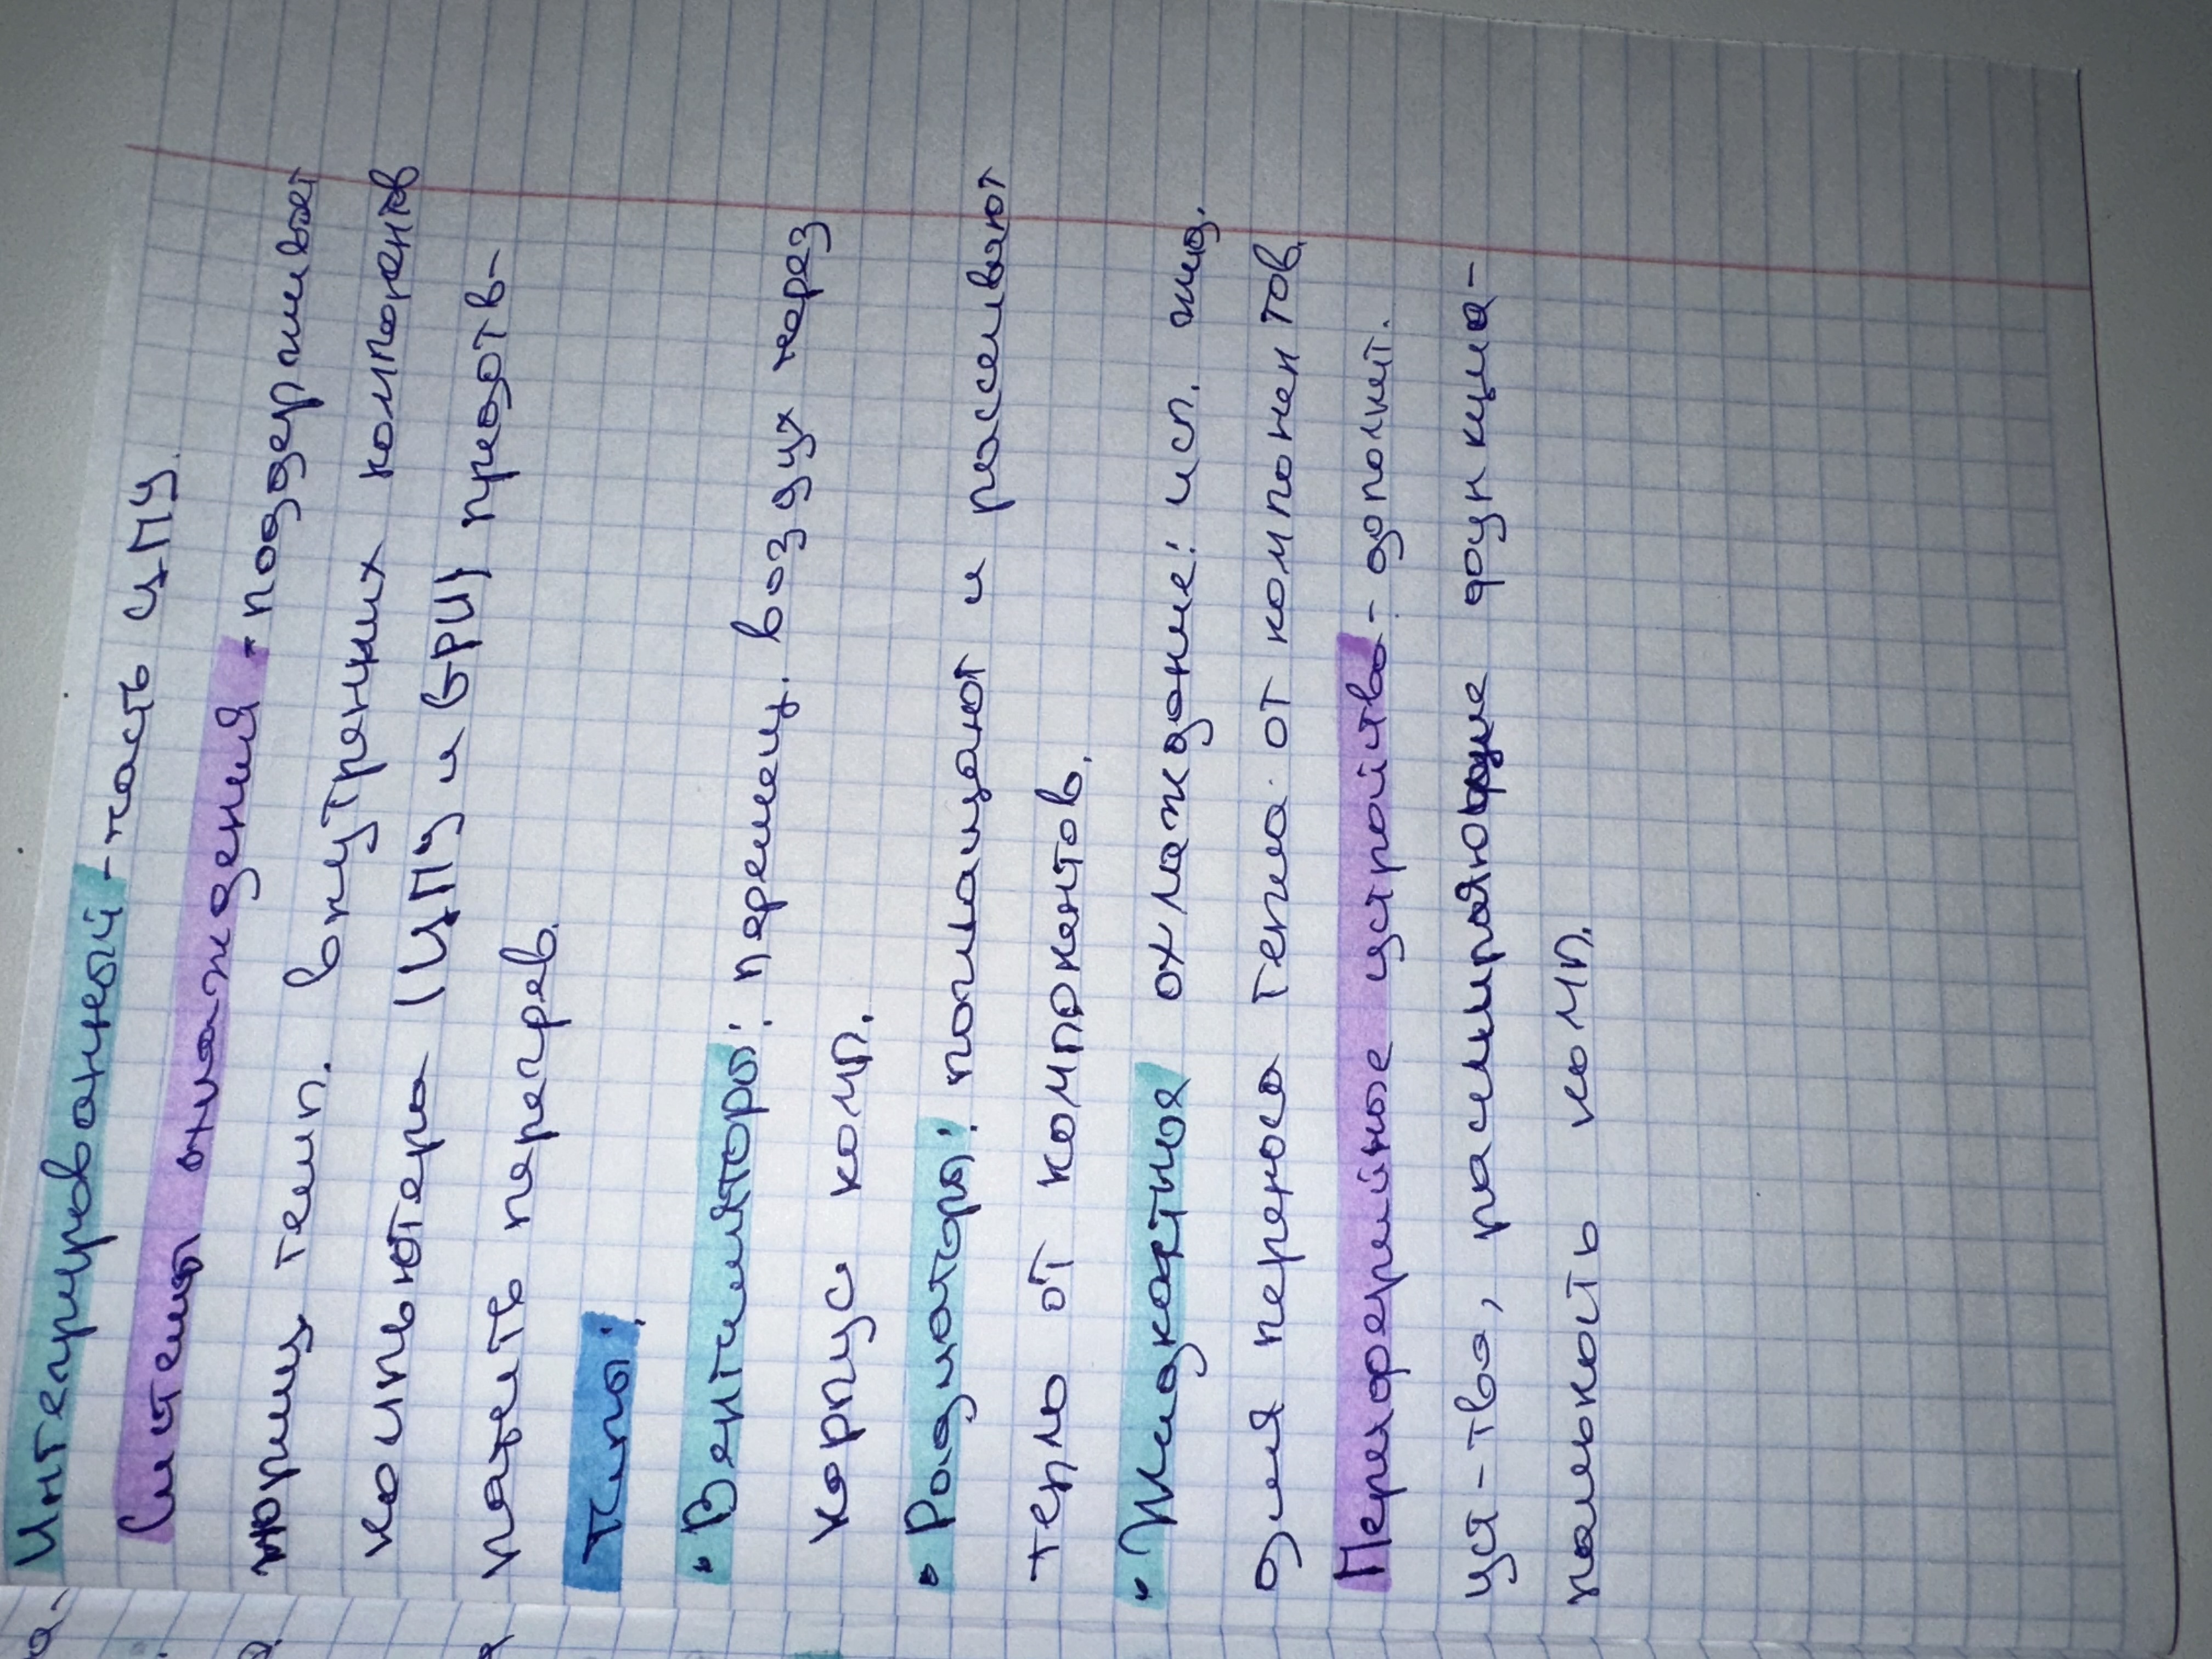 Интегрированный - часть ЦПУ.
Системы охлаждения - поддерживает
норму темп. внутренних компонентов
компьютера (ЦПУ и GPU) предотв-
ратить перегрев.
Типы:
• Вентиляторы: перемещ. воздух через
корпус комп.
• Радиаторы: поглащают и рассеивают
тепло от компонентов.
• Жидкостная охлаждение: исп. жид.
для переноса тепла от компонентов.
Переферийные устройства - дополнит.
уст-тва, расширяющие функцина-
льность комп.